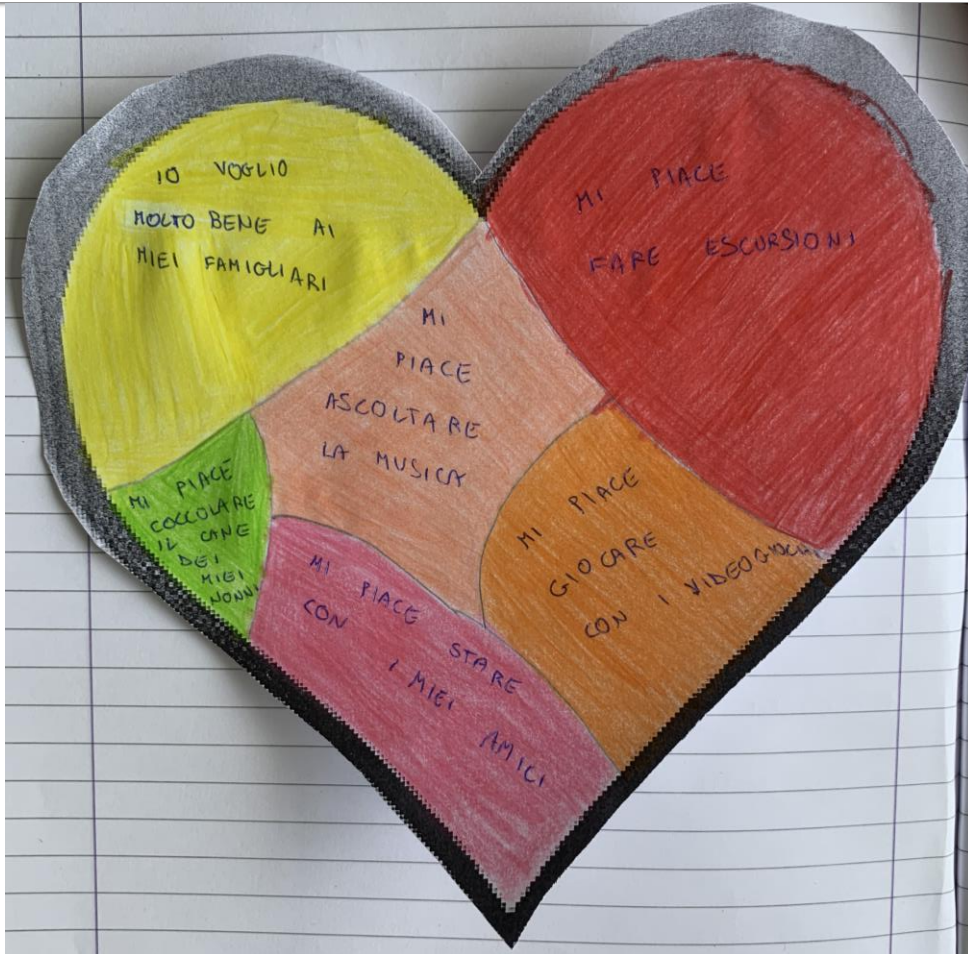 IO VOGLIO
MOLTO BENE AI
MIEI FAMIGLIARI
MI PIACE
FARE ESCURSIONI
MI
PIACE
ASCOLTARE
LA MUSICA
MI PIACE
COCCOLARE
IL CANE
DEI
MIEI
NONNI
MI PIACE
GIOCARE
CON I VIDEOGIOCHI
MI PIACE STARE
CON I MIEI AMICI